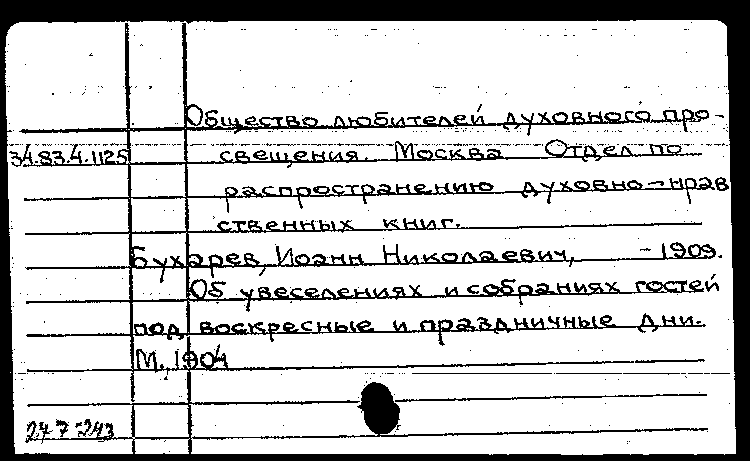 Общество любителей духовного про-
34.83.4.1125 свещения. Москва Отдел по
распространению духовно-нрав
ственных книг.
Бухарев, Иоанн Николаевич, -1909.
Об увеселениях и собраниях гостей
под воскресные и праздничные дни.
М., 1904
247-243